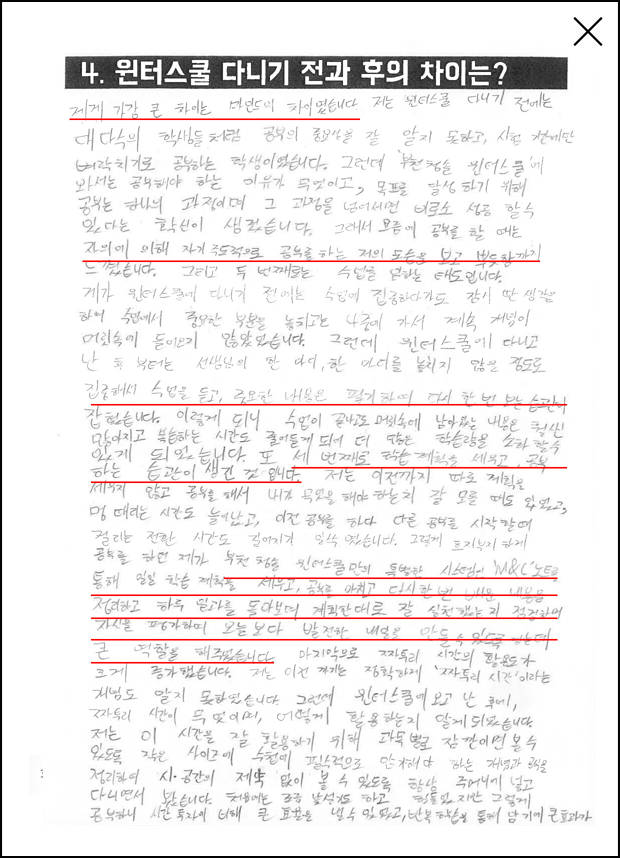 4. 윈터스쿨 다니기 전과 후의 차이는?
제게 가장 큰 차이는 마인드의 차이였습니다. 저는 윈터스쿨 다니기 전에는
대다수의 학생들처럼 공부의 중요성을 잘 알지 못하고, 시험 기간에만
벼락치기로 공부하는 학생이였습니다. 그런데 '부천청솔 윈터스쿨'에
와서는 공부해야 하는 이유가 무엇이고, 목표를 달성하기 위해
공부는 하나의 과정이며 그 과정을 넘어서면 비로소 성공 할 수
있다는 확신이 생겼습니다. 그래서 요즘에 공부를 할 때는
자의에 의해 자기주도적으로 공부를 하는 저의 모습을 보고 뿌듯함까지
느꼈습니다. 그리고 두 번째로는 수업을 임하는 태도입니다.
제가 윈터스쿨에 다니기 전에는 수업에 집중하다가도 잠시 딴 생각을
하며 수업에서 중요한 부분을 놓치고는 나중에 가서 계속 개념이
머릿속에 들어오지 않았었습니다. 그런데 윈터스쿨에 다니고
난 후 부터는 선생님의 한 마디, 한 마디를 놓치지 않을 정도로
집중해서 수업을 듣고, 중요한 내용은 필기하며 다시 한 번 보는 습관이
잡혔습니다. 이렇게 되니 수업이 끝나고도 머릿속에 남아있는 내용은 훨씬
많아지고 복습하는 시간도 줄어들게 되어 더 많은 학습량을 소화할 수
있게 되었습니다. 또 세 번째로 학습 계획을 세우고, 공부
하는 습관이 생긴 것 입니다. 저는 이전까지 따로 계획을
세우지 않고 공부를 해서 내가 무엇을 해야 하는지 잘 모를 때도 있었고,
멍 때리는 시간도 늘어났고, 이전 공부를 하다 다른 공부를 시작할 때
걸리는 전환 시간도 길어지기 일쑤였습니다. 그렇게 흐지부지하게
공부를 하던 제가 부천청솔 윈터스쿨만의 특별한 시스템인 'M&C'노트를
통해 일일 학습 계획을 세우고, 공부를 마치고 다시 한 번 배운 내용을
정리하고 하루 일과를 돌아보며 계획한대로 잘 실천했는지 점검하며
자신을 평가하며 오늘보다 발전한 내일을 만들 수 있도록 하는데
큰 역할을 해주었습니다. 마지막으로 짜투리 시간의 활용도가
크게 증가했습니다. 저는 이전까지는 정확하게 '짜투리 시간'이라는
개념도 알지 못하였습니다. 그런데 윈터스쿨에 오고 난 후에,
짜투리 시간이 무엇이며, 어떻게 활용하는지 알게 되었습니다.
저는 이 시간을 잘 활용하기 위해 과목별로 잠깐이면 볼 수
있도록 작은 사이즈에 수첩에 필수적으로 암기해야 하는 개념과 공식을
정리하여 시·공간의 제약 없이 볼 수 있도록 항상 주머니에 넣고
다니면서 봤습니다. 처음에는 조금 낯설기도 하고 힘들었지만 그렇게
공부하니 시간 투자에 비해 큰 효율을 낼 수 있었고, 반복학습을 통해 암기에 큰 효과가